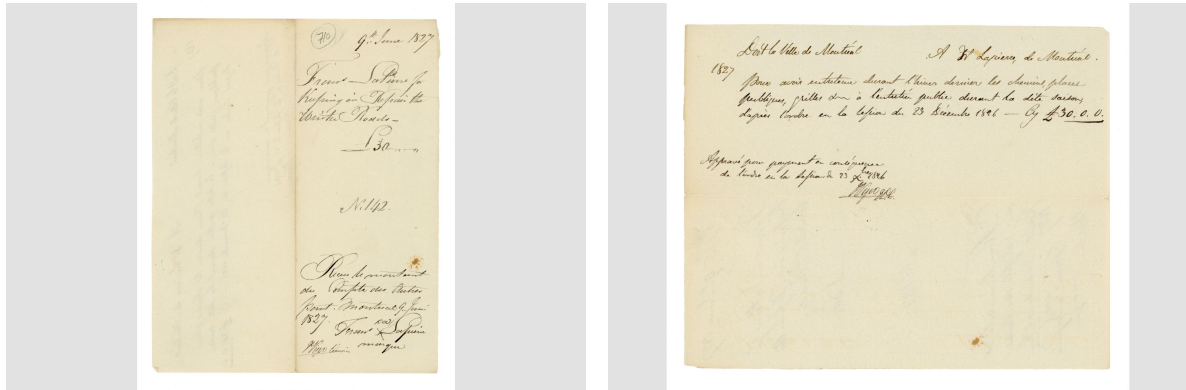 710
9th June 1827
Frans LaPierre for
Keeping in Repair the
Winter Roads -
£30
No. 142.
Recu le montant
du Compte des Autres
part. Montreal 9 Juin
1827
Frans sa x Lapierre
marque
témoin
Doit la Ville de Montréal A Lapierre, de Montréal.
1827
Pour avoir entretenu durant l'hiver dernier les chemins places
publiques, grilles à l'entretien public durant la dite saison,
d'après l'ordre en la du 23 Décembre 1826 — Cy £30.0.0.
Approuvé pour payment en conséquence
de l'ordre en la du 23 1826